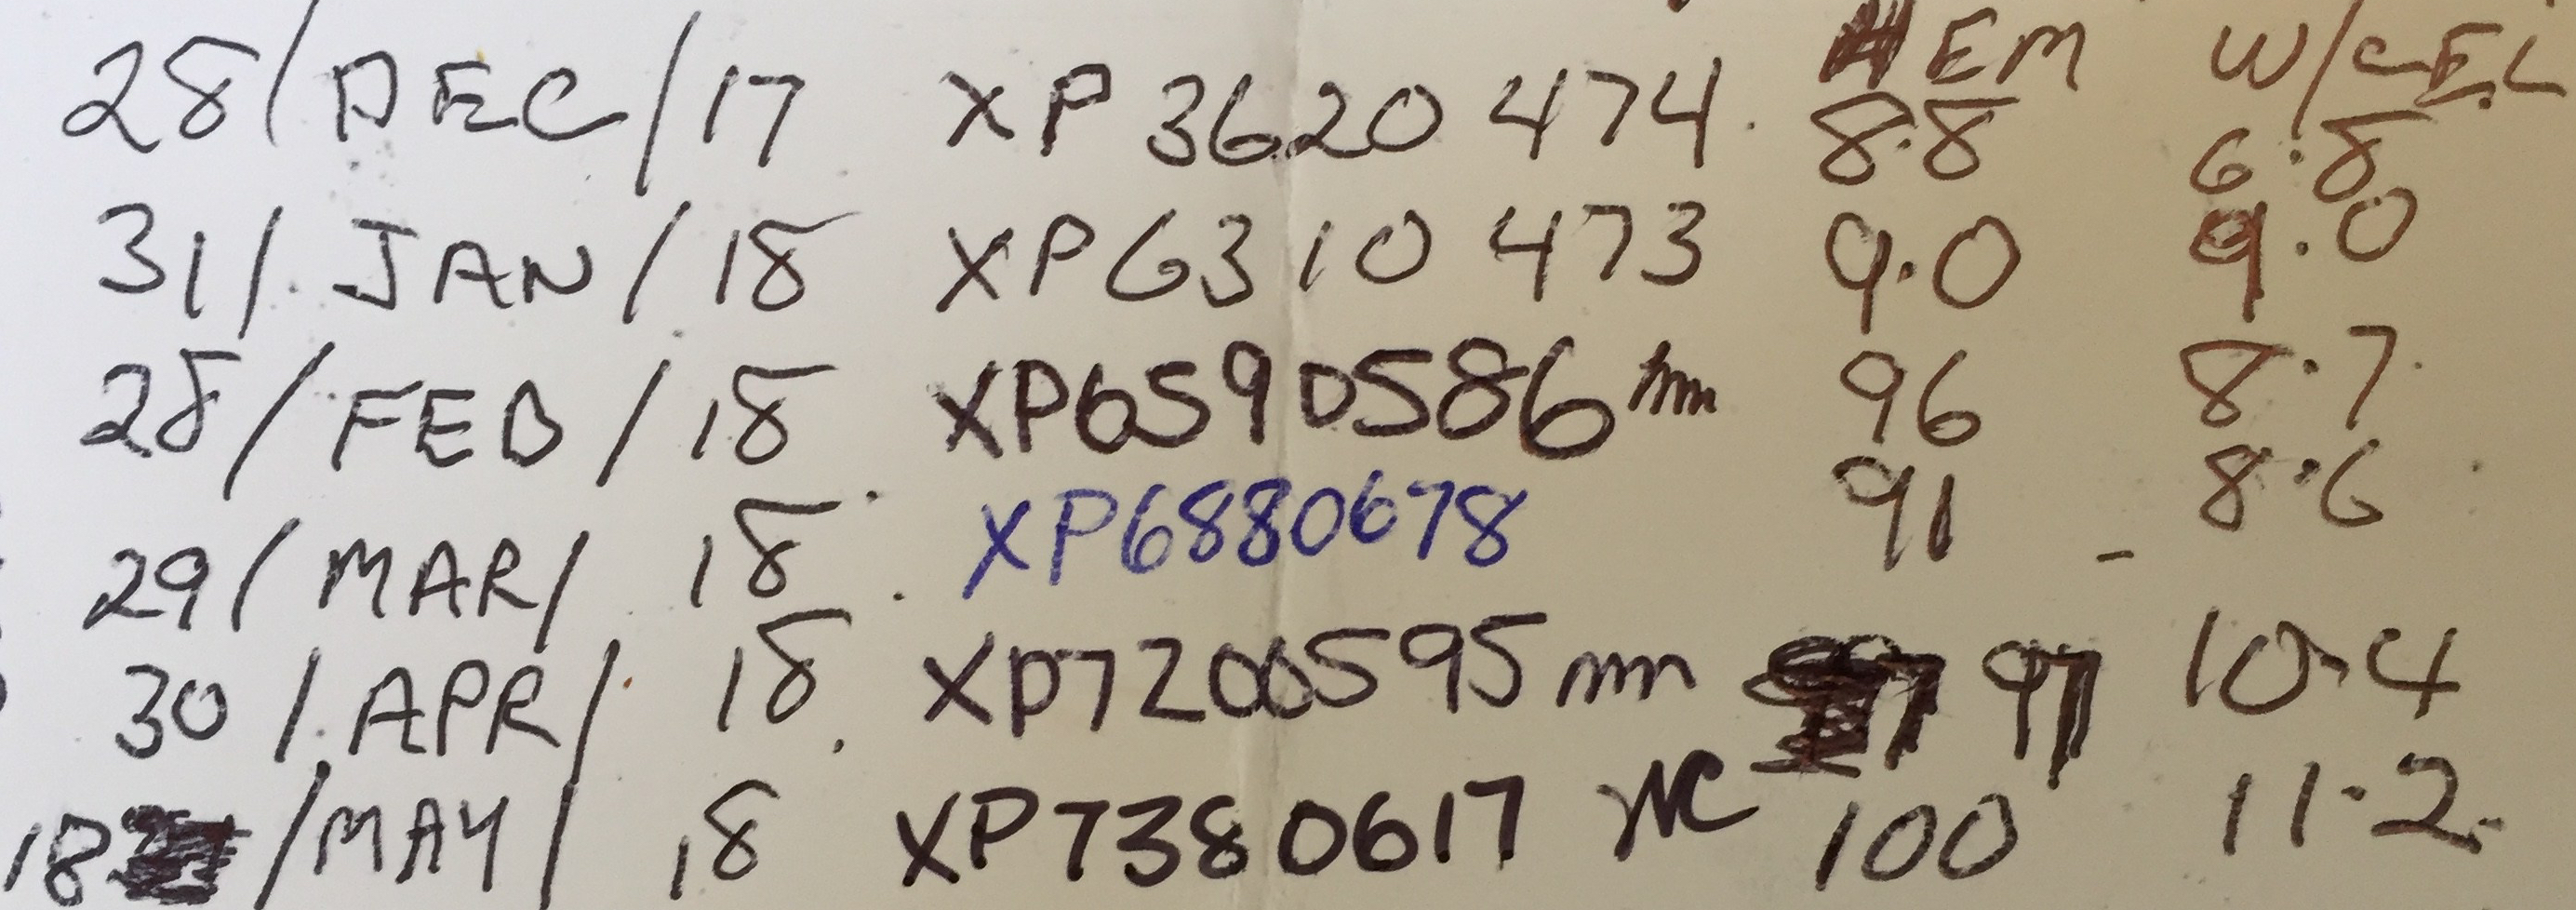 HEM W/CEL
28/DEC/17 XP3620 474. 8.8 6.8
31/JAN/18 XP6310 473 9.0 9.0
28/FEB/18 XP6590586 96 8.7
29/MAR/18 XP6880678 91 - 8.6
30/APR/18 XP7200595 97 10.4
18/MAY/18 XP7380617 100 11.2